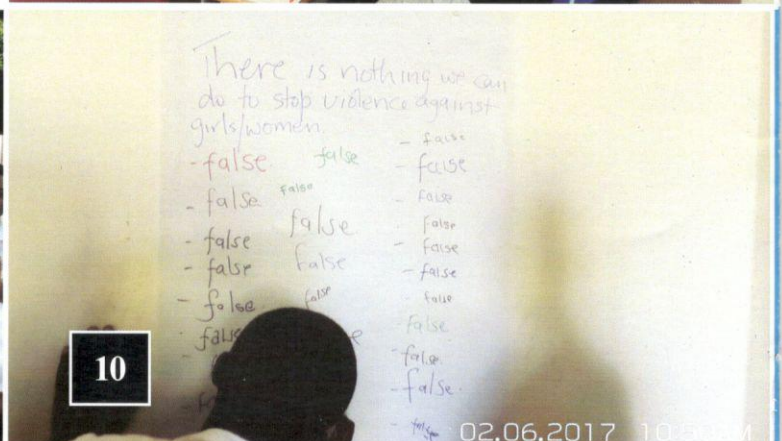 There is nothing we can
do to stop violence against
girls/women.
- false false
- false false
false
- false
- false false
- false false
- false
- false
- false
- false
false
- false
- false
- false
false
false
- false
- false
- false
10
02.06.2017